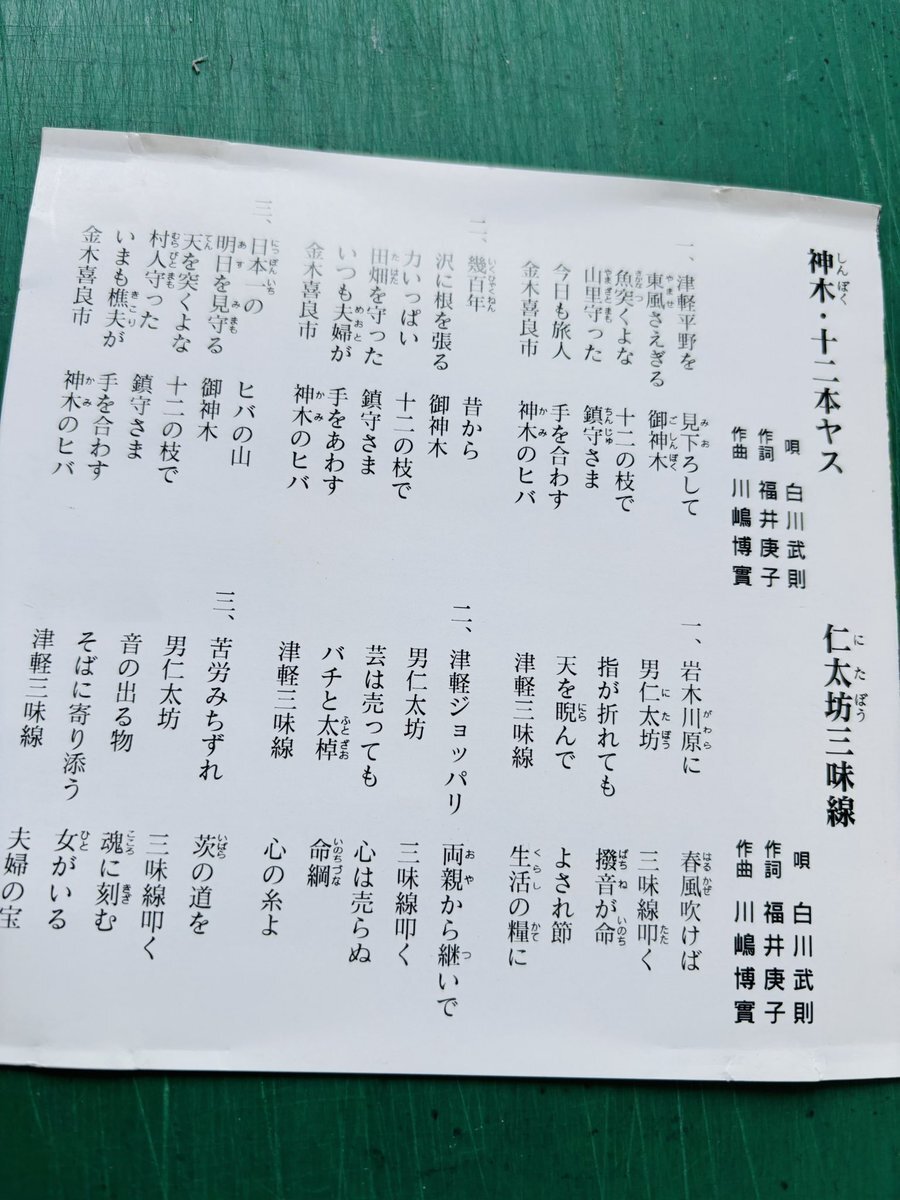 神木・十二本ヤス
唄 白川武則
作詞 福井庚子
作曲 川嶋博實
一、津軽平野を 見下ろして
東風さえぎる 御神木
魚突くよな 十二の枝で
山里守った 鎮守さま
今日も旅人 手を合わす
金木喜良市 神木のヒバ
二、幾百年 昔から
沢に根を張る 御神木
力いっぱい 十二の枝で
田畑を守った 鎮守さま
いつも夫婦が 手をあわす
金木喜良市 神木のヒバ
三、日本一の ヒバの山
明日を見守る 御神木
天を突くよな 十二の枝で
村人守った 鎮守さま
いまも樵夫が 手を合わす
金木喜良市 神木のヒバ
仁太坊三味線
唄 白川武則
作詞 福井庚子
作曲 川嶋博實
一、岩木川原に 春風吹けば
男仁太坊 三味線叩く
指が折れても 撥音が命
天を睨んで よされ節
津軽三味線 生活の糧に
二、津軽ジョッパリ 両親から継いで
男仁太坊 三味線叩く
芸は売っても 心は売らぬ
バチと太棹 命綱
津軽三味線 心の糸よ
三、苦労みちずれ 茨の道を
男仁太坊 三味線叩く
音の出る物 魂に刻む
そばに寄り添う 女がいる
津軽三味線 夫婦の宝